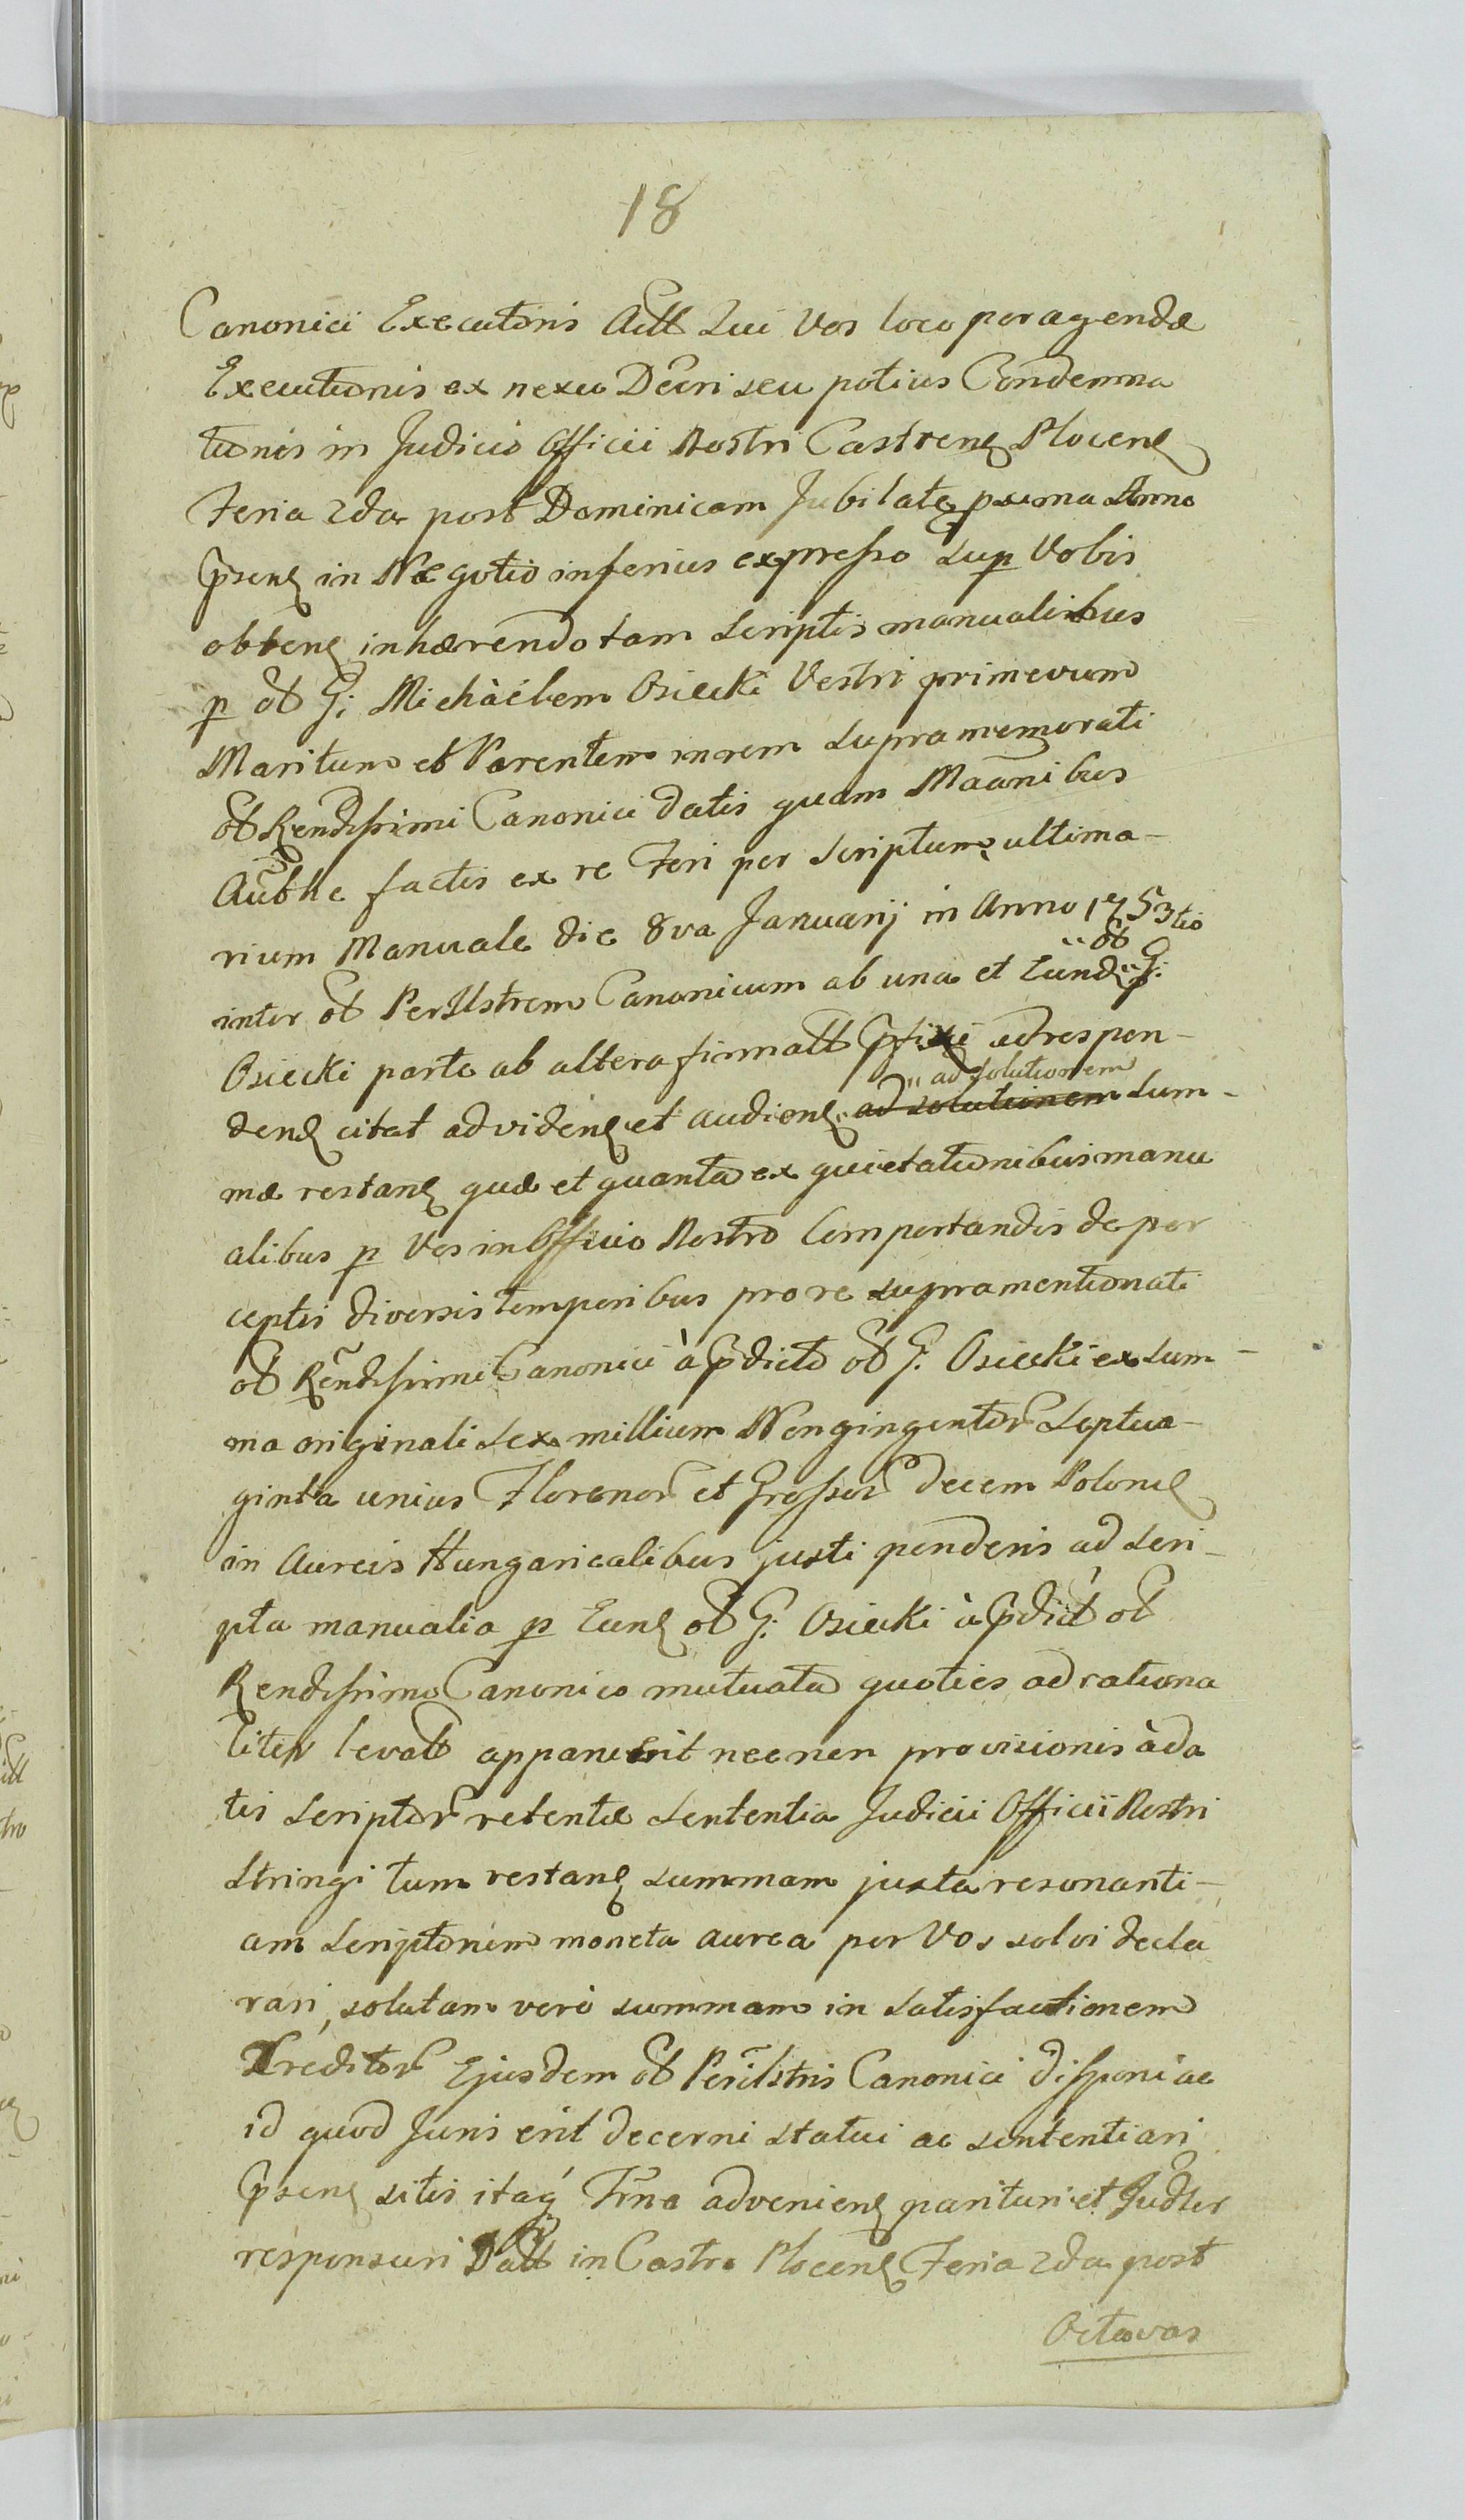 18
Canonici Executoris Actt Qui Vos loco peragendæ
Executionis ex nexu Decri seu potius Condemna
tionis in Judicio Officii Nostri Castren Plocen
Feria 2da post Dominicam Jubilate pxuma Anno
Pðsen in Nægotio inferius expresso Sup Vobis
obten inhærendo tam Scriptis manualibus
p oð G: Michàélem Osiecki Vestri primevum
Maritum et Parentem in rem Supra memorati
oð Rendissimi Canonici datis quam Maōnibus
Autbhc factis ex re Feri per Scriptum ultima-
rium Manuale die 8va Januarij in Anno 1753tio
inter oð PerIlstrem Canonicum ab una et Eund oð G:
Osiecki parte ab altera firmatt Pfixi ad respon-
den citat ad viden et audien ad solutionem ad Solutionem Sum-
mæ restan quæ et quanta ex quietationibus manu
alibus p Vos in Officio Nostro Comportandis de per
ceptis diversis temporibus pro re supramentionati
oð Rendissimi Canonici à Pdicto oð G. Osiecki ex Sum-
ma originali Sex millium Nongingentor Septua-
ginta unius Florenor et Grossor decem Polonic
in Aureis Hungaricalibus justi ponderis ad Scri-
pta manualia p Eun oð G: Osiecki à Pdict oð
Rendissimo Canonico mutuata quoties ad rationa
liter levatt apparuerit necnon provisionis à da
tis Scriptor retentæ Sententia Judicii Officii Nostri
Stringi tum restan summam juxta resonanti-
am Scriptorum moneta aurea per Vos solvi decla
rari, solutam verò summam in Satisfactionem
Creditor Ejusdem oð Perilstris Canonici disponi ac
id quod Juris erit decerni statui ac sententiari
Pðsen sitis itaq́ Trno advenien parituri et Judter
responsuri Datt in Castro Plocen Feria 2da post
Octavas